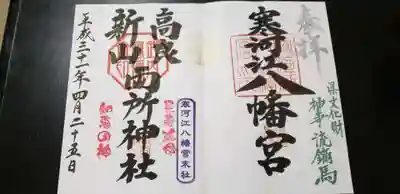 奉拝
寒河江八幡宮
県文化財
神事流鏑馬
高良
新山
両所神社
寒河江八幡宮末社
平成三十一年四月二十五日